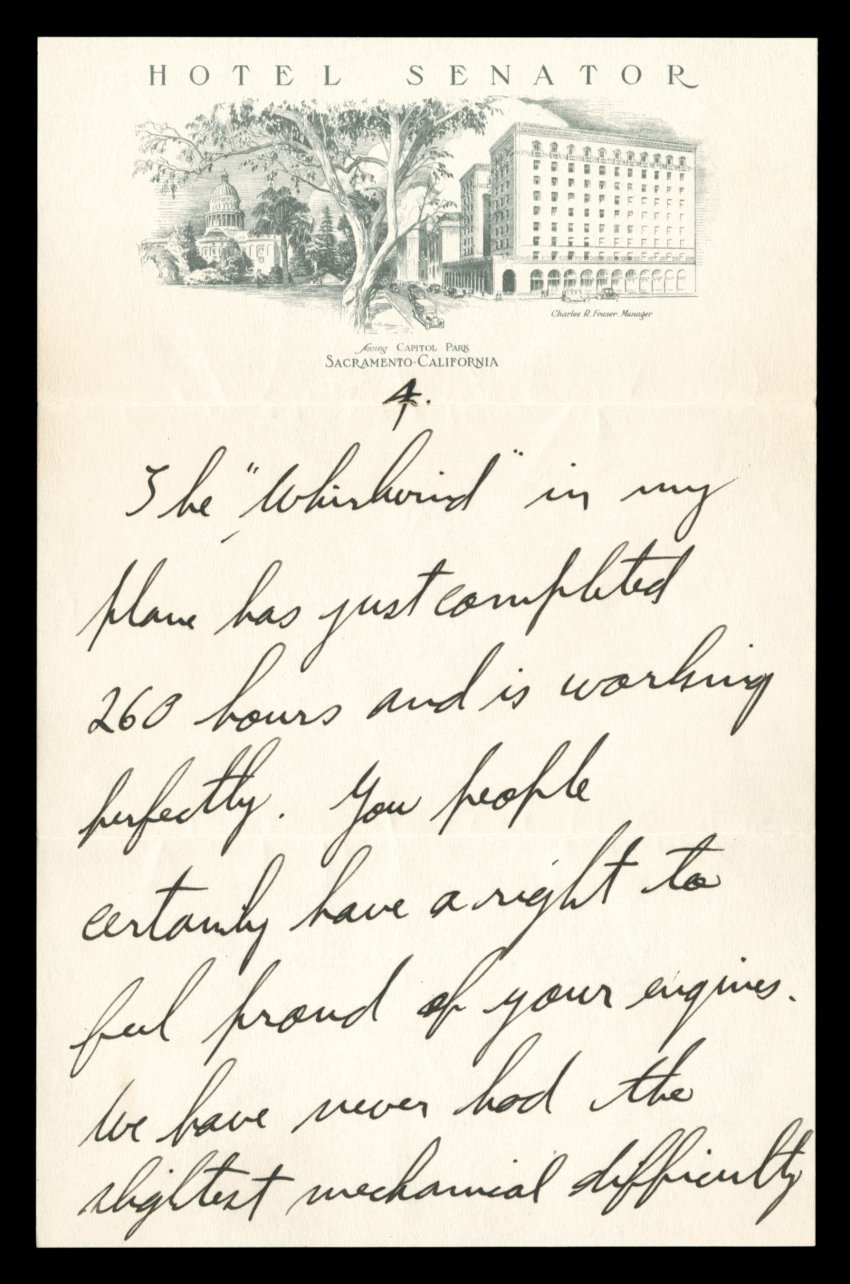 HOTEL SENATOR
Charles R. Fraser. Manager
facing CAPITOL PARK
SACRAMENTO-CALIFORNIA
4.
The "Whirlwind" in my
plane has just completed
260 hours and is working
perfectly. You people
certainly have a right to
feel proud of your engines.
We have never had the
slightest mechanical difficulty